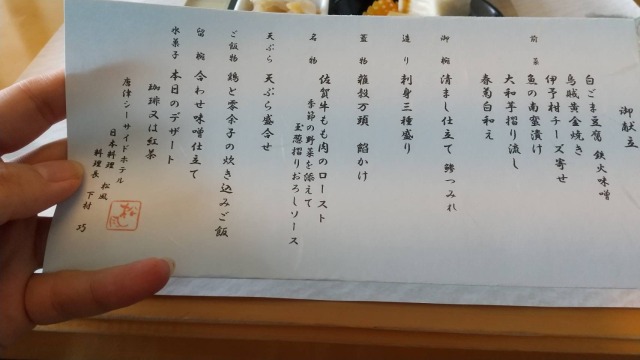 御献立
前菜 白ごま豆腐 鉄火味噌
烏賊黄金焼き
伊予村チーズ寄せ
魚の南蛮漬け
大和芋摺り流し
春菊白和え
御椀 清まし仕立て 鯵つみれ
造り 刺身三種盛り
蓋物 雑穀万頭 餡かけ
名物 佐賀牛もも肉のロースト
季節の野菜を添えて
玉葱摺りおろしソース
天ぷら 天ぷら盛合せ
ご飯物 鶏と零余子の炊き込みご飯
留椀 合わせ味噌仕立て
水菓子 本日のデザート
珈琲又は紅茶
唐津シーサイドホテル
日本料理 松風
料理長 下村 巧